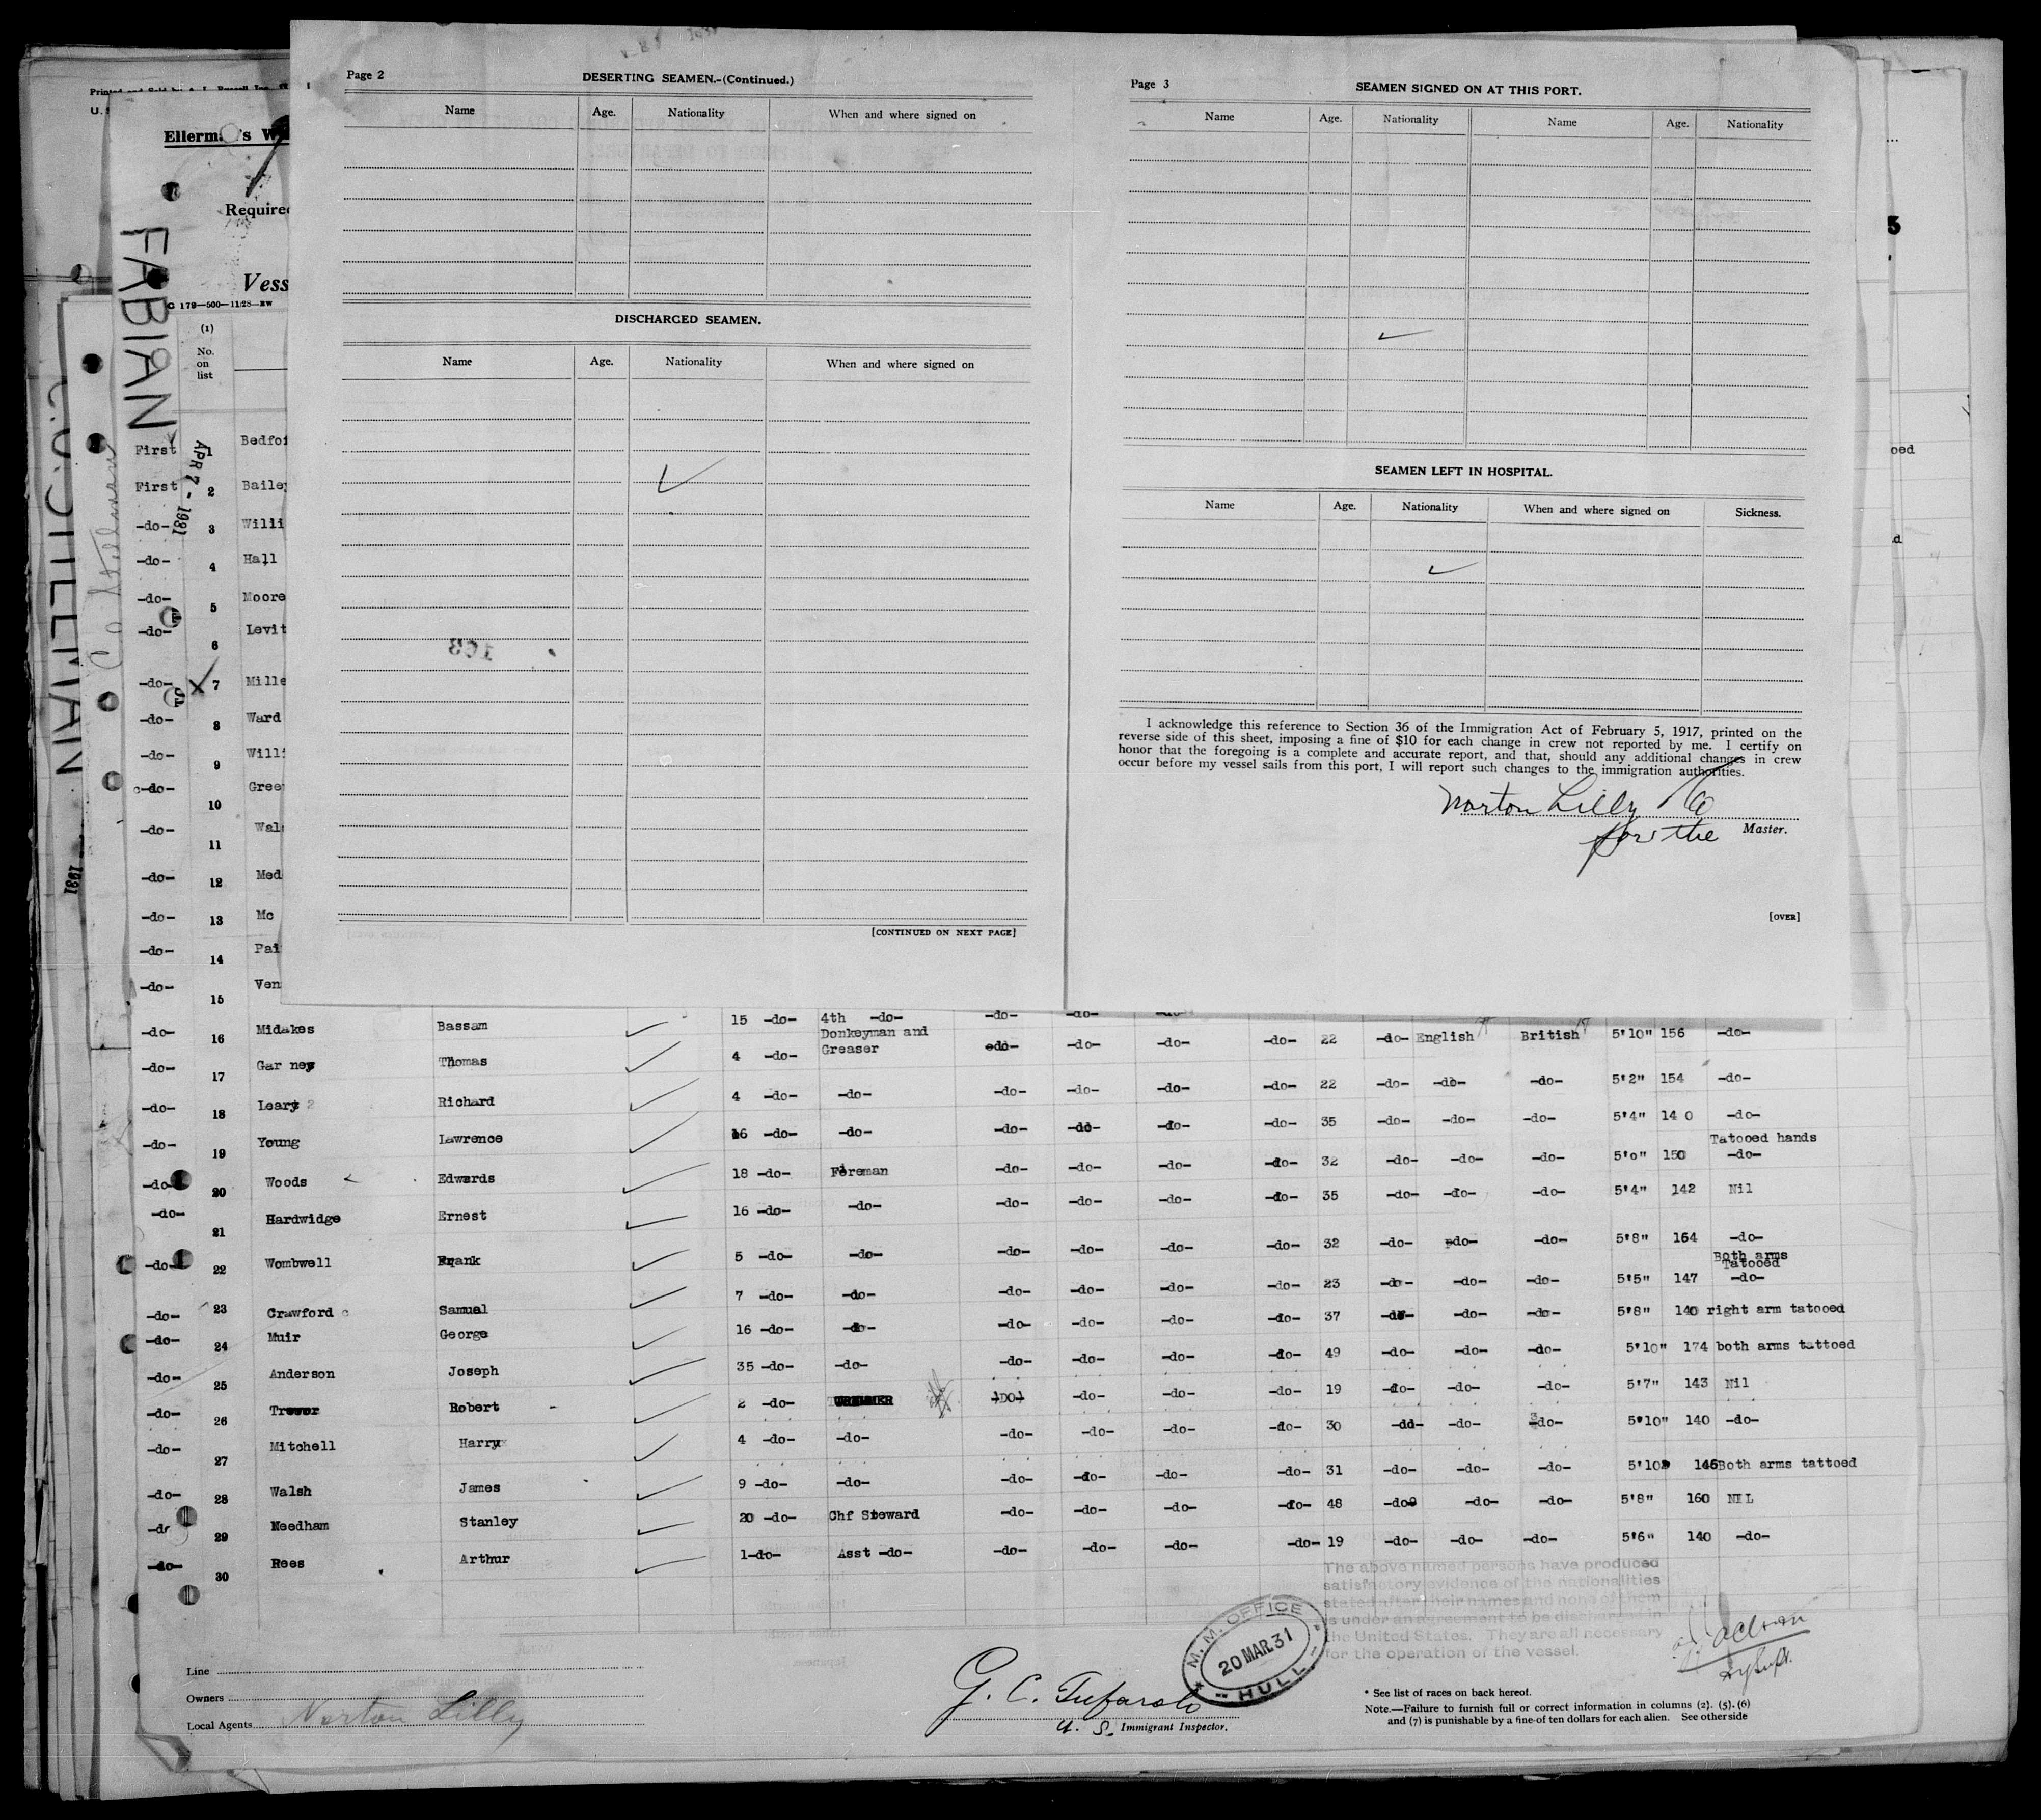 Page 2
DESERTING SEAMEN.-(Continued.)
Name Age. Nationality When and where signed on
DISCHARGED SEAMEN.
Name Age. Nationality When and where signed on
[CONTINUED ON NEXT PAGE]
Page 3
SEAMEN SIGNED ON AT THIS PORT.
Name Age. Nationality Name Age. Nationality
SEAMEN LEFT IN HOSPITAL.
Name Age. Nationality When and where signed on Sickness.
I acknowledge this reference to Section 36 of the Immigration Act of February 5, 1917, printed on the
reverse side of this sheet, imposing a fine of $10 for each change in crew not reported by me. I certify on
honor that the foregoing is a complete and accurate report, and that, should any additional changes in crew
occur before my vessel sails from this port, I will report such changes to the immigration authorities.
Norton Lilly & Co
for the Master.
[OVER]
FABIAN
APR 7 - 1931
(1)
No.
on
list
First 1
First 2
-do- 3 Willi
-do- 4 Hall
-do- 5 Moore
-do- 6 Levit
-do- 7 Mille
-do- 8 Ward
-do- 9 Willi
-do- 10
-do- 11
-do- 12 Med
-do- 13 Mc
-do- 14 Pai
-do- 15 Ven
15 -do- 4th -do- -do- -do-
-do- 16 Midakes Bassam
4 -do- Donkeyman and Greaser -do- -do- -do- -do- 22 -do- English British 5'10" 156 -do-
-do- 17 Garney Thomas
4 -do- -do- -do- -do- -do- -do- 22 -do- -do- -do- 5'2" 154 -do-
-do- 18 Leary Richard
16 -do- -do- -do- -do- -do- -do- 35 -do- -do- -do- 5'4" 140 -do-
-do- 19 Young Lawrence
18 -do- Fireman -do- -do- -do- -do- 32 -do- -do- -do- 5'0" 150 Tatooed hands -do-
-do- 20 Woods Edwards
16 -do- -do- -do- -do- -do- -do- 35 -do- -do- -do- 5'4" 142 Nil
-do- 21 Hardwidge Ernest
5 -do- -do- -do- -do- -do- -do- 32 -do- -do- -do- 5'8" 164 -do-
-do- 22 Wombwell Frank
7 -do- -do- -do- -do- -do- -do- 23 -do- -do- -do- 5'5" 147 Both arms Tatooed -do-
-do- 23 Crawford Samual
16 -do- -do- -do- -do- -do- -do- 37 -do- -do- -do- 5'8" 140 right arm tatooed
-do- 24 Muir George
35 -do- -do- -do- -do- -do- -do- 49 -do- -do- -do- 5'10" 174 both arms tattoed
-do- 25 Anderson Joseph
2 -do- -do- -do- -do- 19 -do- -do- -do- 5'7" 143 Nil
-do- 26 Robert
4 -do- -do- -do- -do- -do- -do- 30 -do- -do- -do- 5'10" 140 -do-
-do- 27 Mitchell Harry
9 -do- -do- -do- -do- -do- -do- 31 -do- -do- -do- 5'10" Both arms tattoed
-do- 28 Walsh James
20 -do- Chf Steward -do- -do- -do- -do- 48 -do- -do- -do- 5'8" 160 NIL
29 Needham Stanley
1-do- Asst -do- -do- -do- -do- -do- 19 -do- -do- -do- 5'6" 140 -do-
-do- 30 Rees Arthur
The above named persons have produced
satisfactory evidence of the nationalities
stated after their names and none of them
is under an agreement to be discharged in
the United States. They are all necessary
for the operation of the vessel.
M. M. OFFICE
20 MAR.31
HULL
Line
Owners
Local Agents Norton Lilly
U. S. Immigrant Inspector.
* See list of races on back hereof.
Note.—Failure to furnish full or correct information in columns (2), (5), (6)
and (7) is punishable by a fine of ten dollars for each alien. See other side